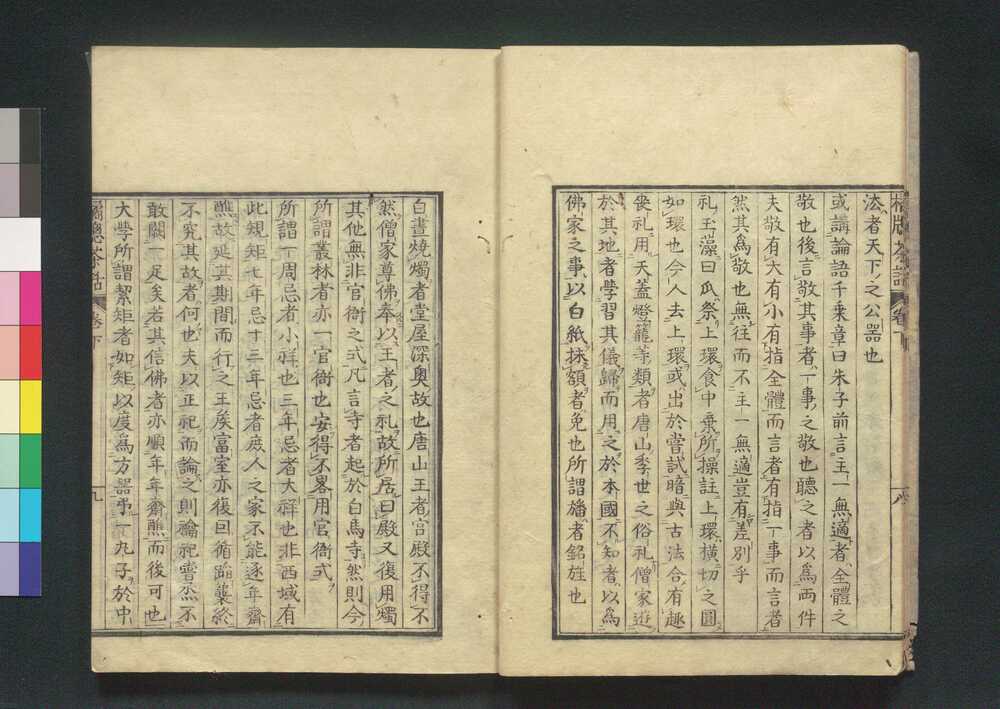 法者天下之公器也
或講論語千乗章曰朱子前言主一無適者全體之
敬也後言敬其事者一事之敬也聴之者以爲兩件
夫敬有大有小有指全體而言者有指一事而言者
然其爲敬也無往而不主一無適豈有差別乎
礼玉藻曰瓜祭上環食中棄所操註上環横切之圓
如環也今人去上環或出於嘗試暗與古法合有趣
喪礼用天蓋燈籠等類者唐山季世之俗礼僧家遊
於其地者學習其儀歸而用之於本國不知者以爲
佛家之事以白紙抹額者免也所謂旛者銘旌也
白晝燒燭者堂屋深奥故也唐山王者宮殿不得不
然僧家尊佛奉以王者之礼故所居曰殿又復用燭
其他無非官衙之式凡言寺者起於白馬寺然則今
所謂叢林者亦一官衙也安得不畧用官衙式
所謂一周忌者小祥也三年忌者大祥也非西域有
此規矩七年忌十三年忌者庶人之家不能逐年齋
醮故延其期間而行之王矦富室亦復囙循踏襲終
不究其故者何也夫以正祀而論之則禴祀嘗烝不
敢闕一足矣若其信佛者亦順年年齋醮而後可也
大學所謂絜矩者如矩以度爲方器弟一九子於中
橘牕茶話 卷下 九